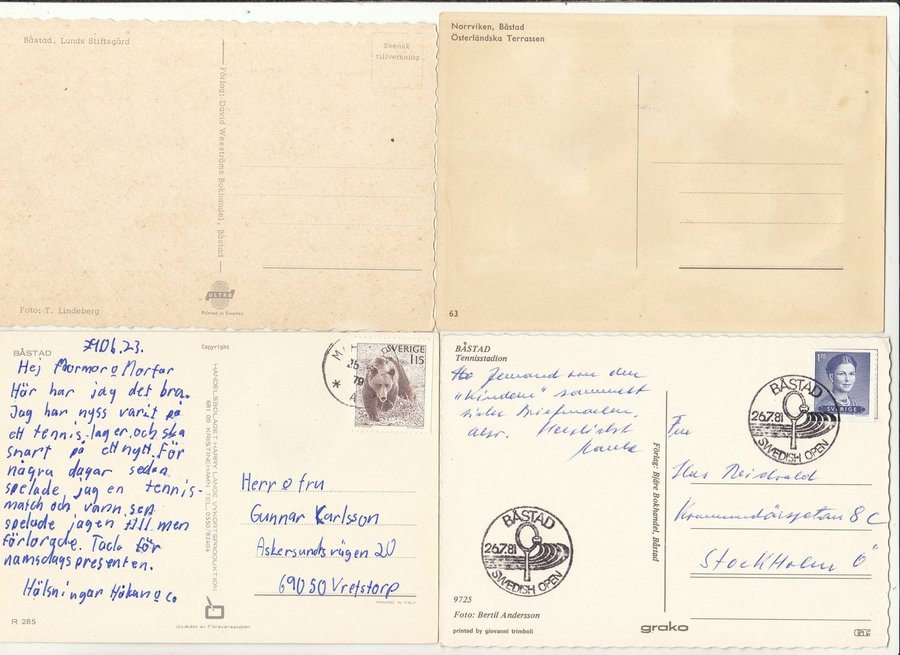 Båstad. Lunds Stiftsgård
Svensk
tillverkning
Förlag: David Wesströms Bokhandel, Båstad
ULTRA
Printed in Sweden
Foto: T. Lindeberg
Norrviken, Båstad
Österländska Terrassen
63
BÅSTAD
Copyright
790623.
Hej Mormor o Morfar
Här har jag det bra.
Jag har nyss varit på
ett tennisläger och ska
snart på ett nytt. För
några dagar sedan
spelade jag en tennis-
match och vann, sen
spelade jag en till men
förlorade. Tack för
namsdagspresenten.
Hälsningar Håkan o Co
R 285
HANDELSBOLAGET HARRY LANGE VYKORTSPRODUKTION
681 00 KRISTINEHAMN TEL. 0550/82604
Godkänt av Försvarsstaben
SVERIGE
115
25
79
Herr o fru
Gunnar Karlsson
Askersundsvägen 20
69050 Vretstorp
PRINTED IN ITALY
BÅSTAD
Tennisstadion
Jemand von den
"Kindern" sammelt
Briefmarken,
Herzlichst
175
SVERIGE
BÅSTAD
26.7.81
SWEDISH OPEN
Fru
8 C
Stockholm Ö
Förlag: Bjäre Bokhandel, Båstad
BÅSTAD
26.7.81
SWEDISH OPEN
9725
Foto: Bertil Andersson
printed by giovanni trimboli
grako